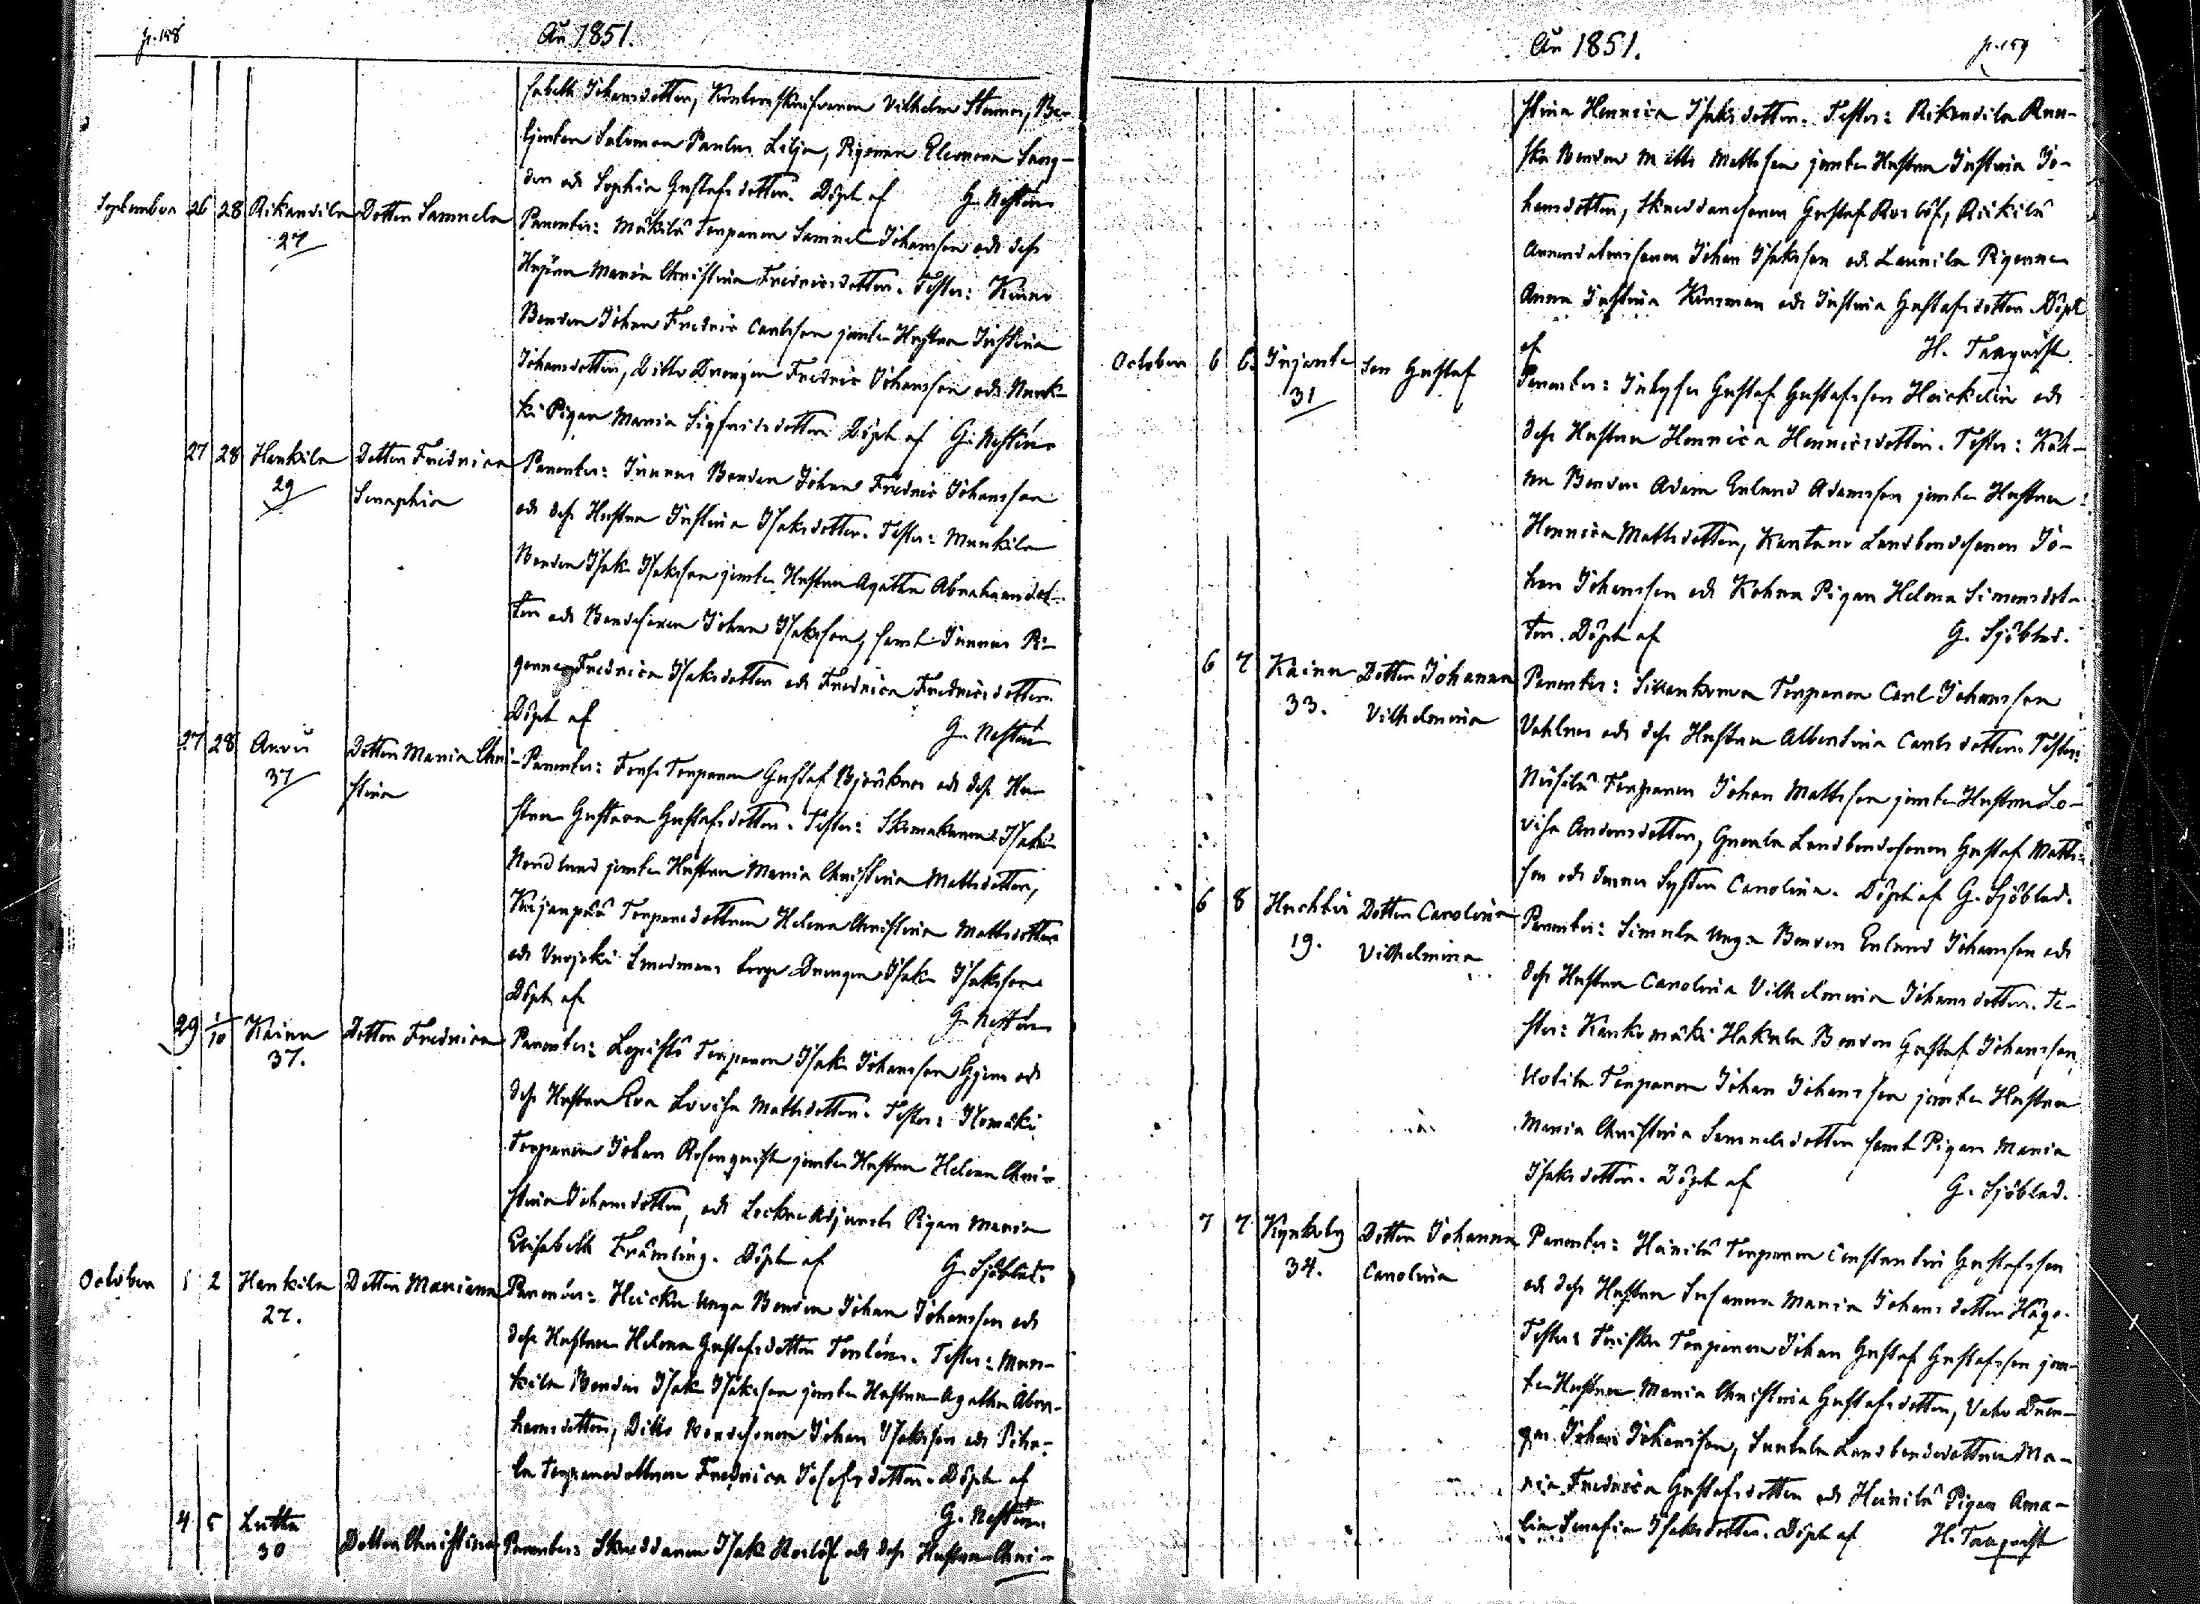 p. 158
Ao 1851.
sabeth Johansdotter, Kontorsskrifvaren Vilhelm Stenroos, Be-
tjenten Salomon Paulus Lilja, Pigorna Eleonora Lang-
den och Sophia Gustafsdotter. Döpt af G. Neftén
September 26 28 Rikandila Dotter Samuela
27
Parentes: Mäkilä Torparen Samuel Johansson och dess
Hustru Maria Christina Fredricsdotter. Testes:
Bonden Johan Fredric Carlsson jemte Hustrun Justina
Johansdotter, Ditto Drengen Fredric Johansson och
Pigan Maria Sigfridsdotter. Döpt af G. Neftén
27 28 Henkila Dotter Fredrica
29 Seraphia
Parentes: Junnus Bonden Johan Fredric Johansson
och dess Hustru Justina Isaksdotter. Testes: Mankila
Bonden Isak Isaksson jemte Hustrun Agatha Abrahamsdot-
ter och Bondesonen Johan Isaksson, samt Junnus Pi-
gorna Fredrica Isaksdotter och Fredrica Fredricsdotter.
Döpt af G. Neftén
27 28 Anvii Dotter Maria Chri-
37 stina
Parentes: Torparen Gustaf Björkroos och dess Hu-
strun Gustava Gustafsdotter. Testes: Skomakaren Isak
Nordlund jemte Hustrun Maria Christina Mattsdotter,
Torparedottren Helena Christina Mattsdotter
och Drengen Isak Isaksson
Döpt af G. Neftén
29 1/10 Kaina Dotter Fredrica
37.
Parentes: Lepistö Torparen Isak Johansson och
dess Hustru Eva Lovisa Mattsdotter. Testes: Isomäki
Torparen Johan Rosenqvist jemte Hustrun Helena Chri-
stina Johansdotter, och Pigan Maria
Elisabeth Främling. Döpt af G. Sjöblad.
October 1 2 Henkila Dotter Mariana
27.
Parentes: Heicka Unga Bonden Johan Johansson och
dess Hustru Helena Gustafsdotter Torlén. Testes: Man-
kila Bonden Isak Isaksson jemte Hustrun Agatha Abra-
hamsdotter, Ditto Bondesonen Johan Isaksson och
Torparedottren Fredrica Josefsdotter. Döpt af
G. Neftén
4 5 Lutta Dotter Christina
30
Parentes: Skräddaren Isak Roslöf och dess Hustru Chri-
Ao 1851. p. 159
stina Henrica Isaksdotter. Testes: Rikandila
Bonden Matts Mattsson jemte Hustrun Justina Jo-
hansdotter, Skräddaresonen Gustaf Roslöf,
Johan Isaksson och Launila Pigorna
Anna Justina Kinsman och Justina Gustafsdotter. Döpt
af H. Taaqvist.
October 6 6 Injante Son Gustaf
31
Parentes: Gustaf Gustafsson Heickelin och
dess Hustru Henrica Henricsdotter. Testes:
Bonden Adam Erland Adamsson jemte Hustrun
Henrica Mattsdotter, Kantano Landbondesonen Jo-
han Johansson och Pigan Helena Simonsdot-
ter. Döpt af G. Sjöblad.
6 7 Kaina Dotter Johanna
33. Vilhelmina
Parentes: Torparen Carl Johansson
Vahlroos och dess Hustru Albertina Carlsdotter. Testes:
Torparen Johan Mattsson jemte Hustrun Lo-
visa Andersdotter, Landbondesonen Gustaf Matts-
son och dennes Syster Carolina. Döpt af G. Sjöblad.
6 8 Huchtis Dotter Carolina
19. Vilhelmina
Parentes: Simula Unga Bonden Erland Johansson och
dess Hustru Carolina Vilhelmina Johansdotter. Te-
stes: Kankomäki Hakala Bonden Gustaf Johansson,
Torparen Johan Johansson jemte Hustrun
Maria Christina Samuelsdotter samt Pigan Maria
Isaksdotter. Döpt af G. Sjöblad.
7 7 Kynkoby Dotter Johanna
34. Carolina
Parentes: Heinilä Torparen Constantin Gustafsson
och dess Hustru Susanna Maria Johansdotter
Testes: Torparen Johan Gustaf Gustafsson jem-
te Hustrun Maria Christina Gustafsdotter, Dren-
gen Johan Johansson, Landbondedottren Ma-
ria Fredrica Gustafsdotter och Heinilä Pigan Ama-
lia Serafia Isaksdotter. Döpt af H. Taaqvist